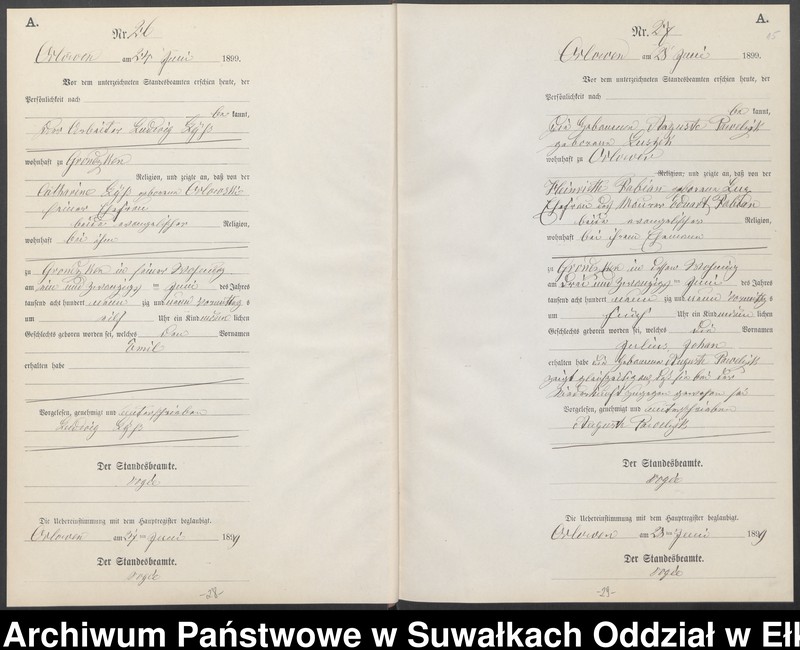 A.
Nr. 26
Orlowen am 24 Juni 1899.
Vor dem unterzeichneten Standesbeamten erschien heute, der
Persönlichkeit nach
be kannt,
der Arbeiter Ludwig
wohnhaft zu Grondzken
Religion, und zeigte an, daß von der
Catharine geborene Orlowski
seiner Ehefrau
beide evangelischer Religion,
wohnhaft bei ihm
zu Grondzken in seiner Wohnung
am ein und zwanzigsten Juni des Jahres
tausend acht hundert neun zig und neun Vormittag s
um elf Uhr ein Kind männ lichen
Geschlechts geboren worden sei, welches den Vornamen
Emil
erhalten habe
Vorgelesen, genehmigt und unterschrieben
Ludwig
Der Standesbeamte.
Die Uebereinstimmung mit dem Hauptregister beglaubigt.
Orlowen am 24 ten Juni 1899
Der Standesbeamte.
-28-
A.
Nr. 27
Orlowen am 23 Juni 1899.
Vor dem unterzeichneten Standesbeamten erschien heute, der
Persönlichkeit nach
be kannt,
die Hebamme Auguste
geborene
wohnhaft zu Orlowen
Religion, und zeigte an, daß von der
Heinriette Fabian geborene
Ehefrau des Maurer Eduard Fabian
beide evangelischer Religion,
wohnhaft bei ihrem Ehemann
zu Grondzken in dessen Wohnung
am drei und zwanzigsten Juni des Jahres
tausend acht hundert neun zig und neun Vormittag s
um fünf Uhr ein Kind männ lichen
Geschlechts geboren worden sei, welches die Vornamen
Julius, Johan
erhalten habe Die Hebamme Auguste
zeigt gleichzeitig an, daß sie bei der
Niederkunft zugegen gewesen sei
Vorgelesen, genehmigt und unterschrieben
Auguste
Der Standesbeamte.
Die Uebereinstimmung mit dem Hauptregister beglaubigt.
Orlowen am 23 ten Juni 1899
Der Standesbeamte.
-29-
Archiwum Państwowe w Suwałkach Oddział w Ełk